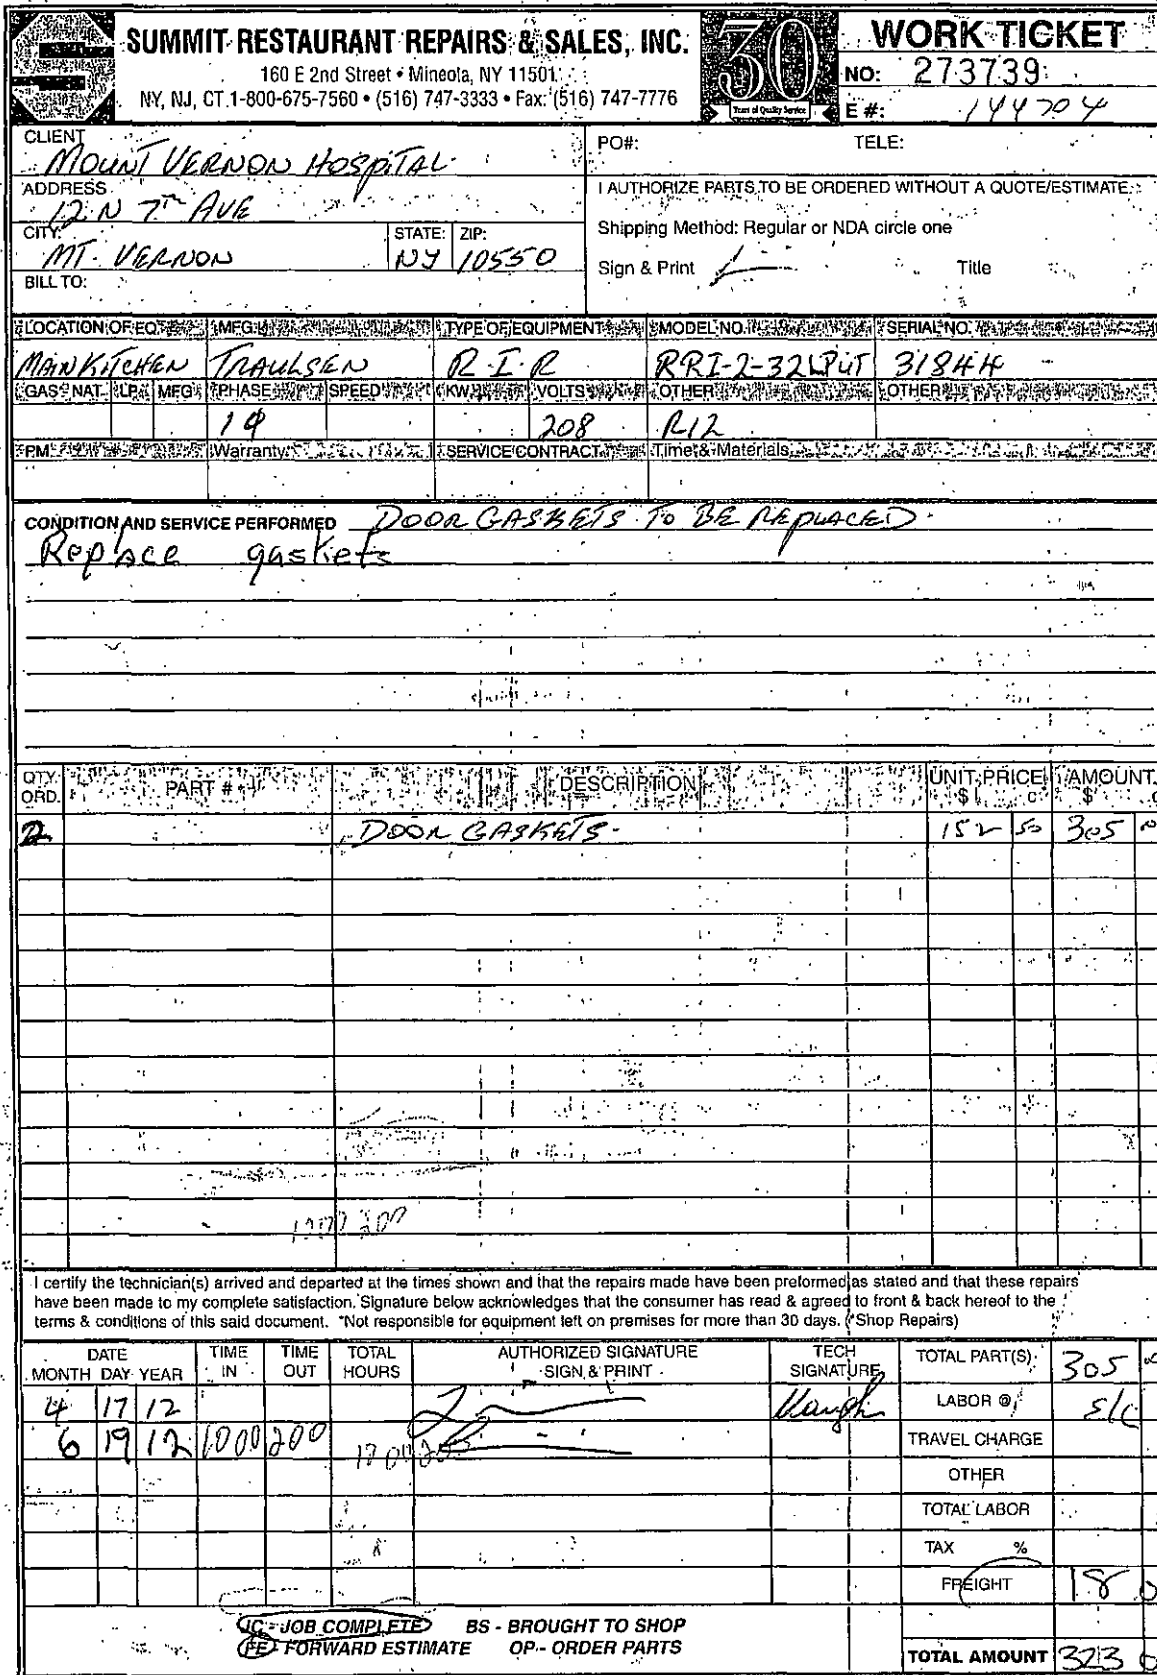 SUMMIT RESTAURANT REPAIRS & SALES, INC.
160 E 2nd Street • Mineola, NY 11501
NY, NJ, CT 1-800-675-7560 • (516) 747-3333 • Fax: (516) 747-7776
30
Years of Quality Service
WORK TICKET
NO: 273739
E #: 144704
CLIENT
MOUNT VERNON HOSPITAL
ADDRESS
12 N 7TH AVE
CITY: STATE: ZIP:
MT. VERNON NY 10550
BILL TO:
PO#: TELE:
I AUTHORIZE PARTS TO BE ORDERED WITHOUT A QUOTE/ESTIMATE
Shipping Method: Regular or NDA circle one
Sign & Print Title
LOCATION OF EQ. MFG. TYPE OF EQUIPMENT MODEL NO. SERIAL NO.
MAIN KITCHEN TRAULSEN R.I.R RRI-2-32LPUT 31844
GAS NAT. LP MFG PHASE SPEED KW VOLTS OTHER OTHER
1Φ 208 R12
PM Warranty SERVICE CONTRACT Time & Materials
CONDITION AND SERVICE PERFORMED DOOR GASKETS TO BE REPLACED.
Replace gaskets
QTY. ORD. PART # DESCRIPTION UNIT PRICE $ c AMOUNT $ c
2 DOOR GASKETS. 152 50 305
1000 200
I certify the technician(s) arrived and departed at the times shown and that the repairs made have been preformed as stated and that these repairs
have been made to my complete satisfaction. Signature below acknowledges that the consumer has read & agreed to front & back hereof to the
terms & conditions of this said document. *Not responsible for equipment left on premises for more than 30 days. (*Shop Repairs)
DATE MONTH DAY YEAR TIME IN TIME OUT TOTAL HOURS AUTHORIZED SIGNATURE SIGN & PRINT TECH SIGNATURE
4 17 12
6 19 12 1000 200
TOTAL PART(S) 305
LABOR @ S/C
TRAVEL CHARGE
OTHER
TOTAL LABOR
TAX %
FREIGHT 18 0
TOTAL AMOUNT 323 0
JC - JOB COMPLETE BS - BROUGHT TO SHOP
FE - FORWARD ESTIMATE OP - ORDER PARTS